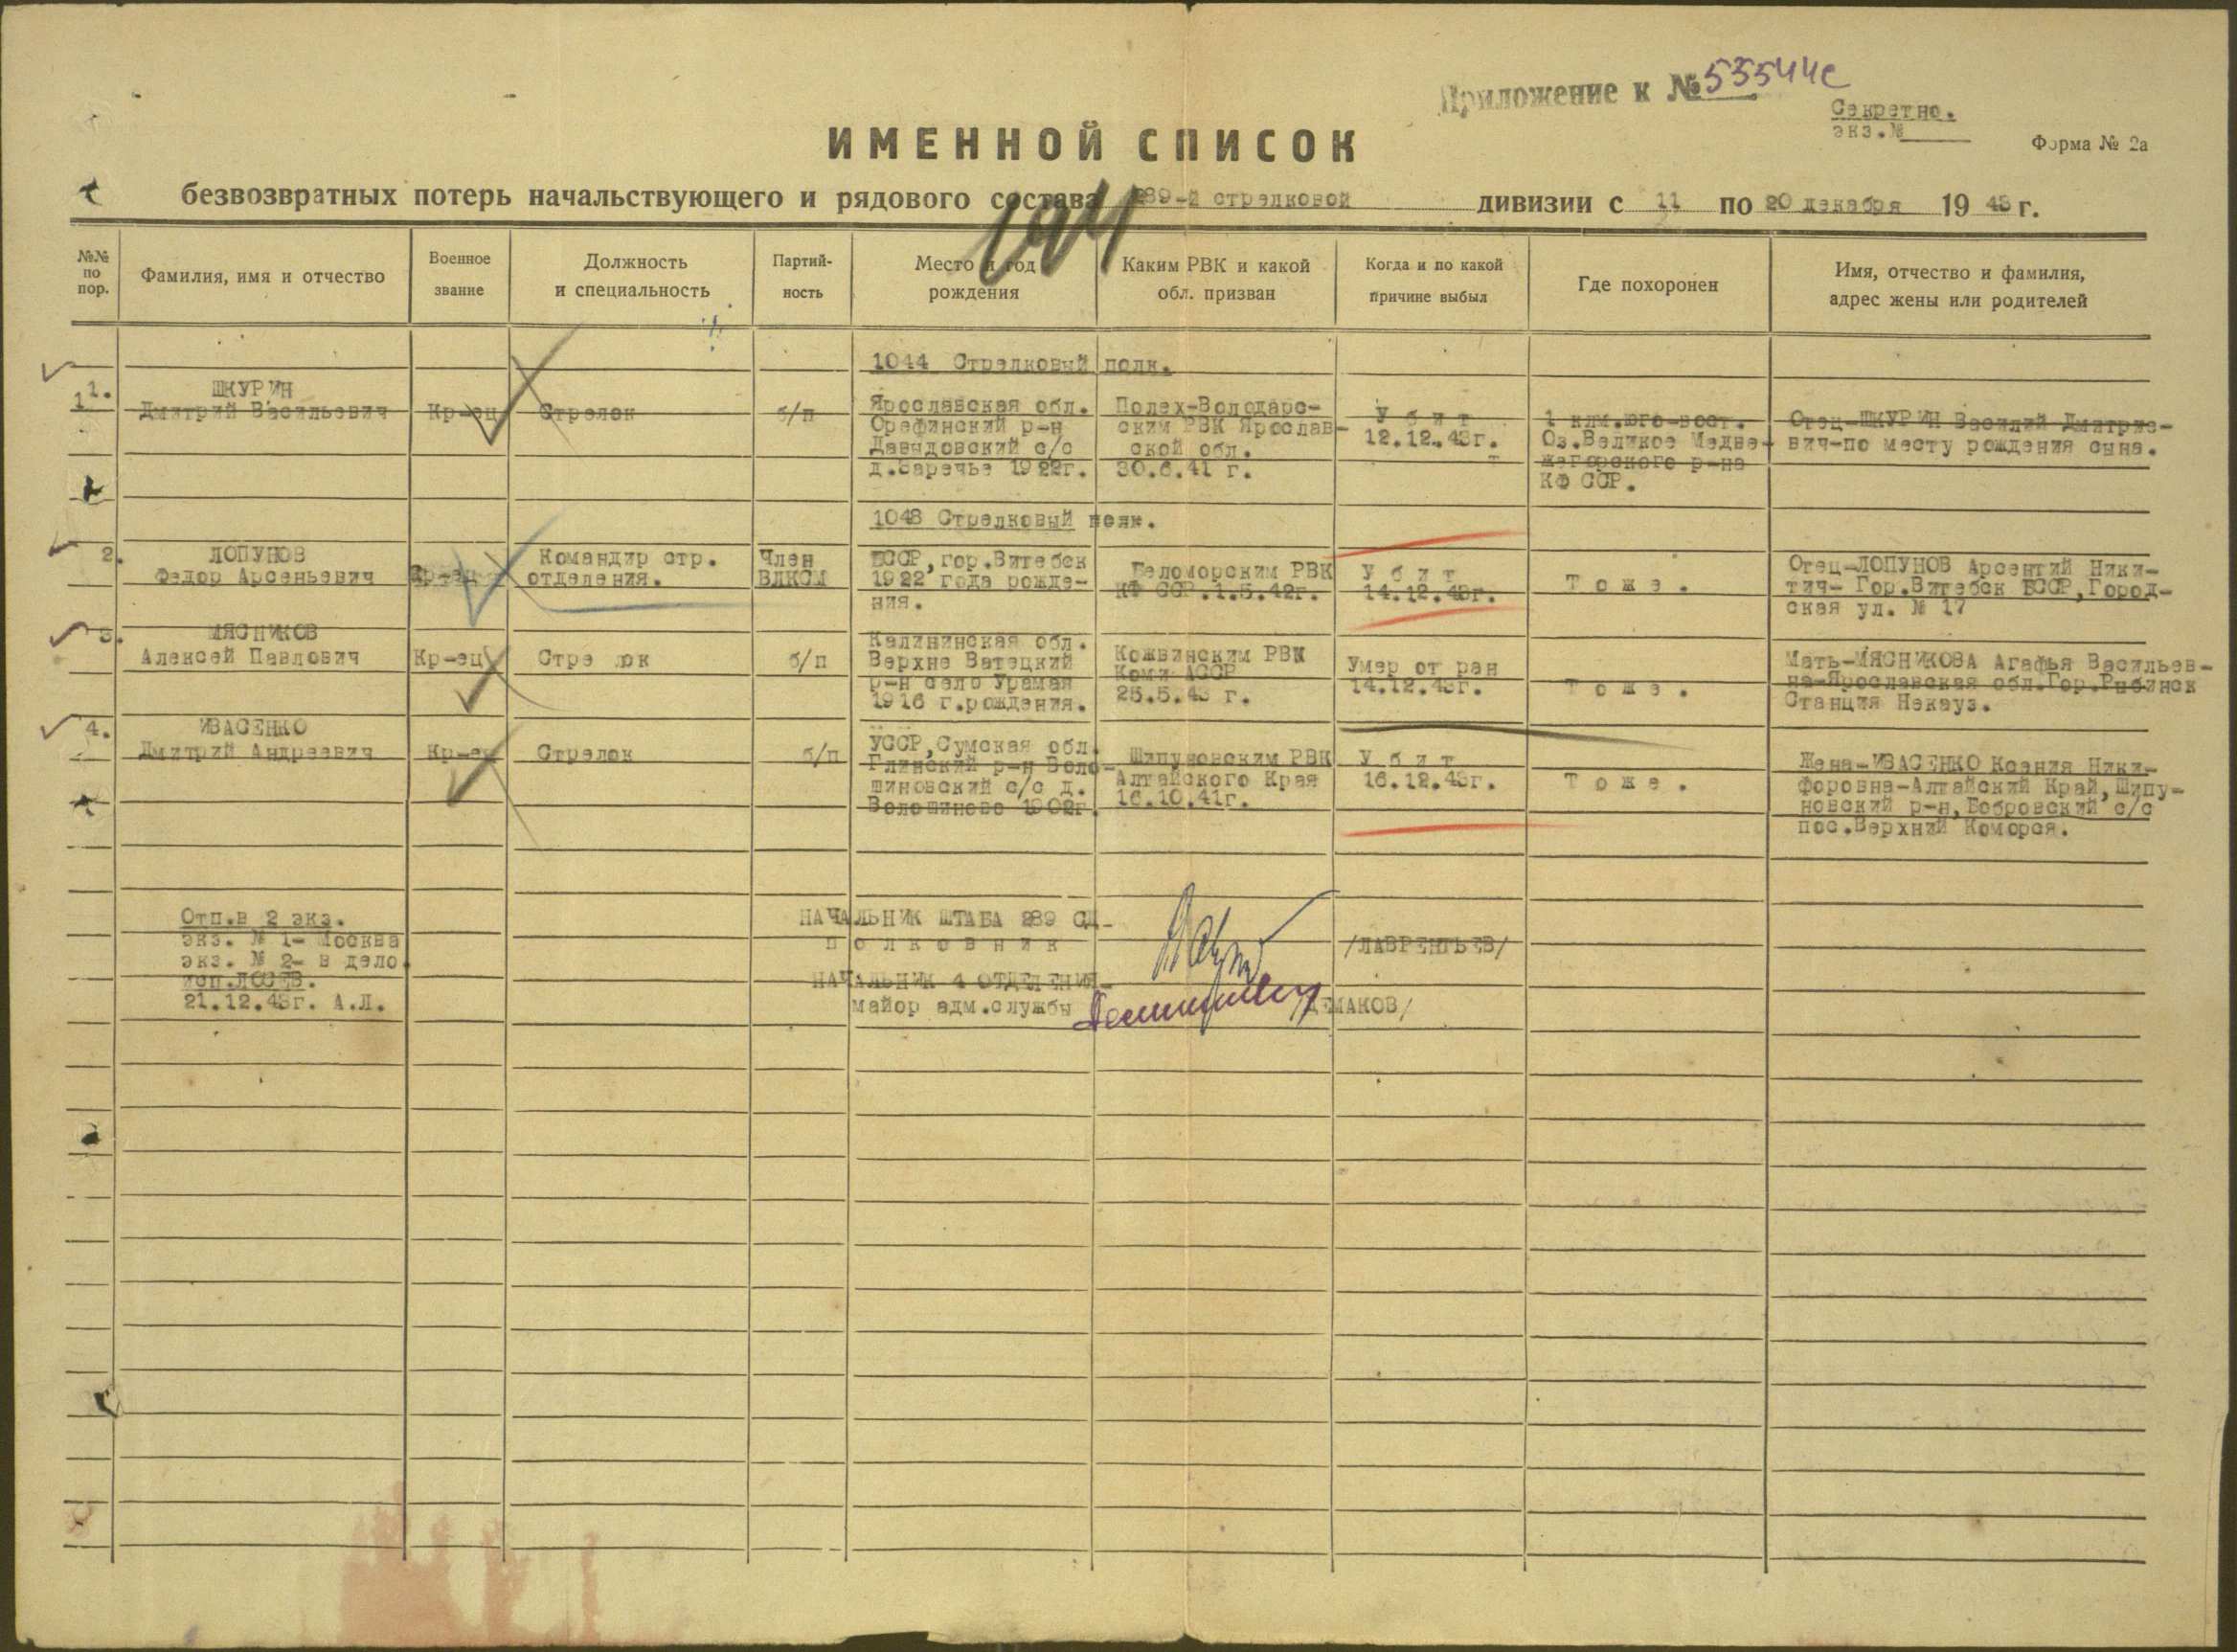 Приложение к № 53544с
Секретно.
экз.№
Форма № 2а
ИМЕННОЙ СПИСОК
безвозвратных потерь начальствующего и рядового состава 289-й стрелковой дивизии с 11 по 20 декабря 1943 г.
№№ по пор.
Фамилия, имя и отчество
Военное звание
Должность и специальность
Партий-ность
Место и год рождения
Каким РВК и какой обл. призван
Когда и по какой причине выбыл
Где похоронен
Имя, отчество и фамилия, адрес жены или родителей
1044 Стрелковый полк.
1.
ШКУРИН
Дмитрий Васильевич
Кр-ец
Стрелок
б/п
Ярославская обл.
Орефинский р-н
Давыдовский с/с
д.Заречье 1922г.
Полех-Володарс-
ским РВК Ярослав-
ской обл.
30.6.41 г.
Убит
12.12.43г.
1 клм.юго-вост.
Оз.Великое Медве-
жегорского р-на
КФ ССР.
Отец-ШКУРИН Василий Дмитрие-
вич-по месту рождения сына.
1048 Стрелковый полк.
2.
ЛОПУНОВ
Федор Арсеньевич
Кр-ец
Командир стр.
отделения.
Член
ВЛКСМ
БССР,гор.Витебск
1922 года рожде-
ния.
Беломорским РВК
КФ ССР.1.5.42г.
Убит
14.12.43г.
Тоже.
Отец-ЛОПУНОВ Арсентий Ники-
тич- Гор.Витебск БССР,Город-
ская ул. № 17
3.
МЯСНИКОВ
Алексей Павлович
Кр-ец
Стрелок
б/п
Калининская обл.
Верхне Ватецкий
р-н село Урамая
1916 г.рождения.
Кожвинским РВК
Коми АССР
25.5.43 г.
Умер от ран
14.12.43г.
Тоже.
Мать-МЯСНИКОВА Агафья Васильев-
на-Ярославская обл.Гор.Рыбинск
Станция Некауз.
4.
ИВАСЕНКО
Дмитрий Андреевич
Кр-ец
Стрелок
б/п
УССР,Сумская обл.
Глинский р-н Воло-
шиновский с/с д.
Волошиново 1902г.
Шипуновским РВК
Алтайского Края
16.10.41г.
Убит
16.12.43г.
Тоже.
Жена-ИВАСЕНКО Ксения Ники-
форовна-Алтайский Край,Шипу-
новский р-н,Бобровский с/с
пос.Верхний Коморся.
Отп.в 2 экз.
экз. № 1- Москва
экз. № 2- в дело
исп.ЛОСЕВ.
21.12.43г. А.Л.
НАЧАЛЬНИК ШТАБА 289 СД-
полковник
/ЛАВРЕНТЬЕВ/
НАЧАЛЬНИК 4 ОТДЕЛЕНИЯ-
майор адм.службы
/ДЕМАКОВ/